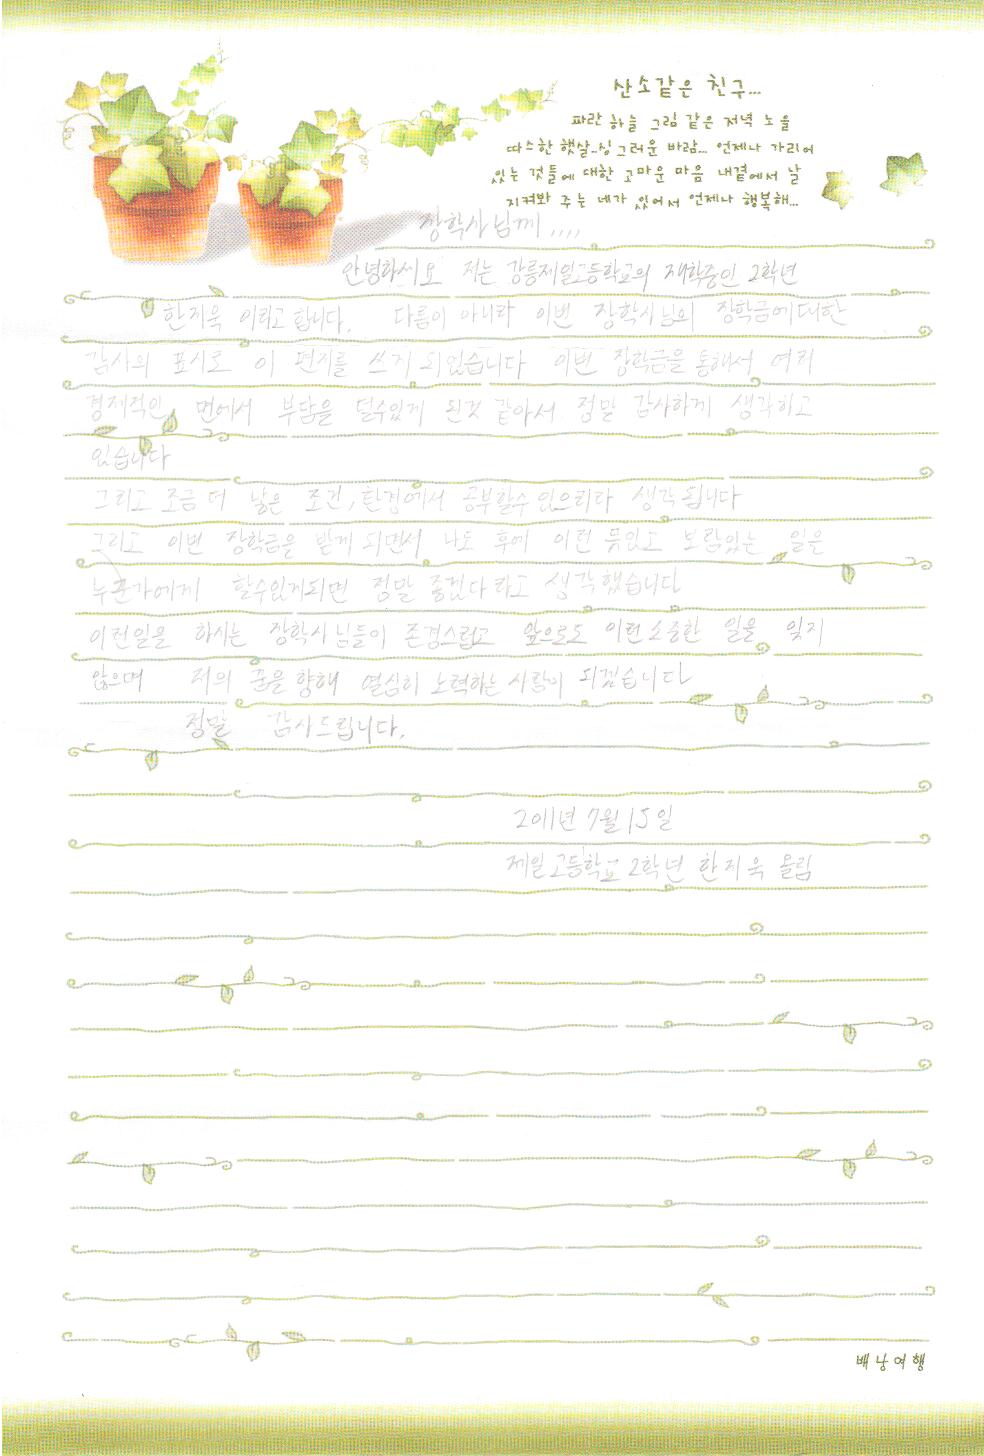 산소같은 친구...
파란 하늘 그림 같은 저녁 노을
따스한 햇살..싱그러운 바람... 언제나 가리어
있는 것들에 대한 고마운 마음 내곁에서 날
지켜봐 주는 네가 있어서 언제나 행복해...
장학사님께 ....
안녕하세요 저는 강릉제일고등학교의 재학중인 2학년
한지욱 이라고 합니다. 다름이 아니라 이번 장학사님의 장학금에대한
감사의 표시로 이 편지를 쓰게 되었습니다 이번 장학금을 통해서 여러
경제적인 면에서 부담을 덜수있게 된것 같아서 정말 감사하게 생각하고
있습니다
그리고 조금 더 낳은 조건, 환경에서 공부할수 있으리라 생각 됩니다
그리고 이번 장학금을 받게 되면서 나도 후에 이런 뜻있고 보람있는 일을
누군가에게 할수있게되면 정말 좋겠다 라고 생각했습니다
이런일을 하시는 장학사님들이 존경스럽고 앞으로도 이런 소중한 일을 잊지
않으며 저의 꿈을 향해 열심히 노력하는 사람이 되겠습니다
정말 감사드립니다.
2011년 7월 15일
제일고등학교 2학년 한지욱 올림
배낭여행